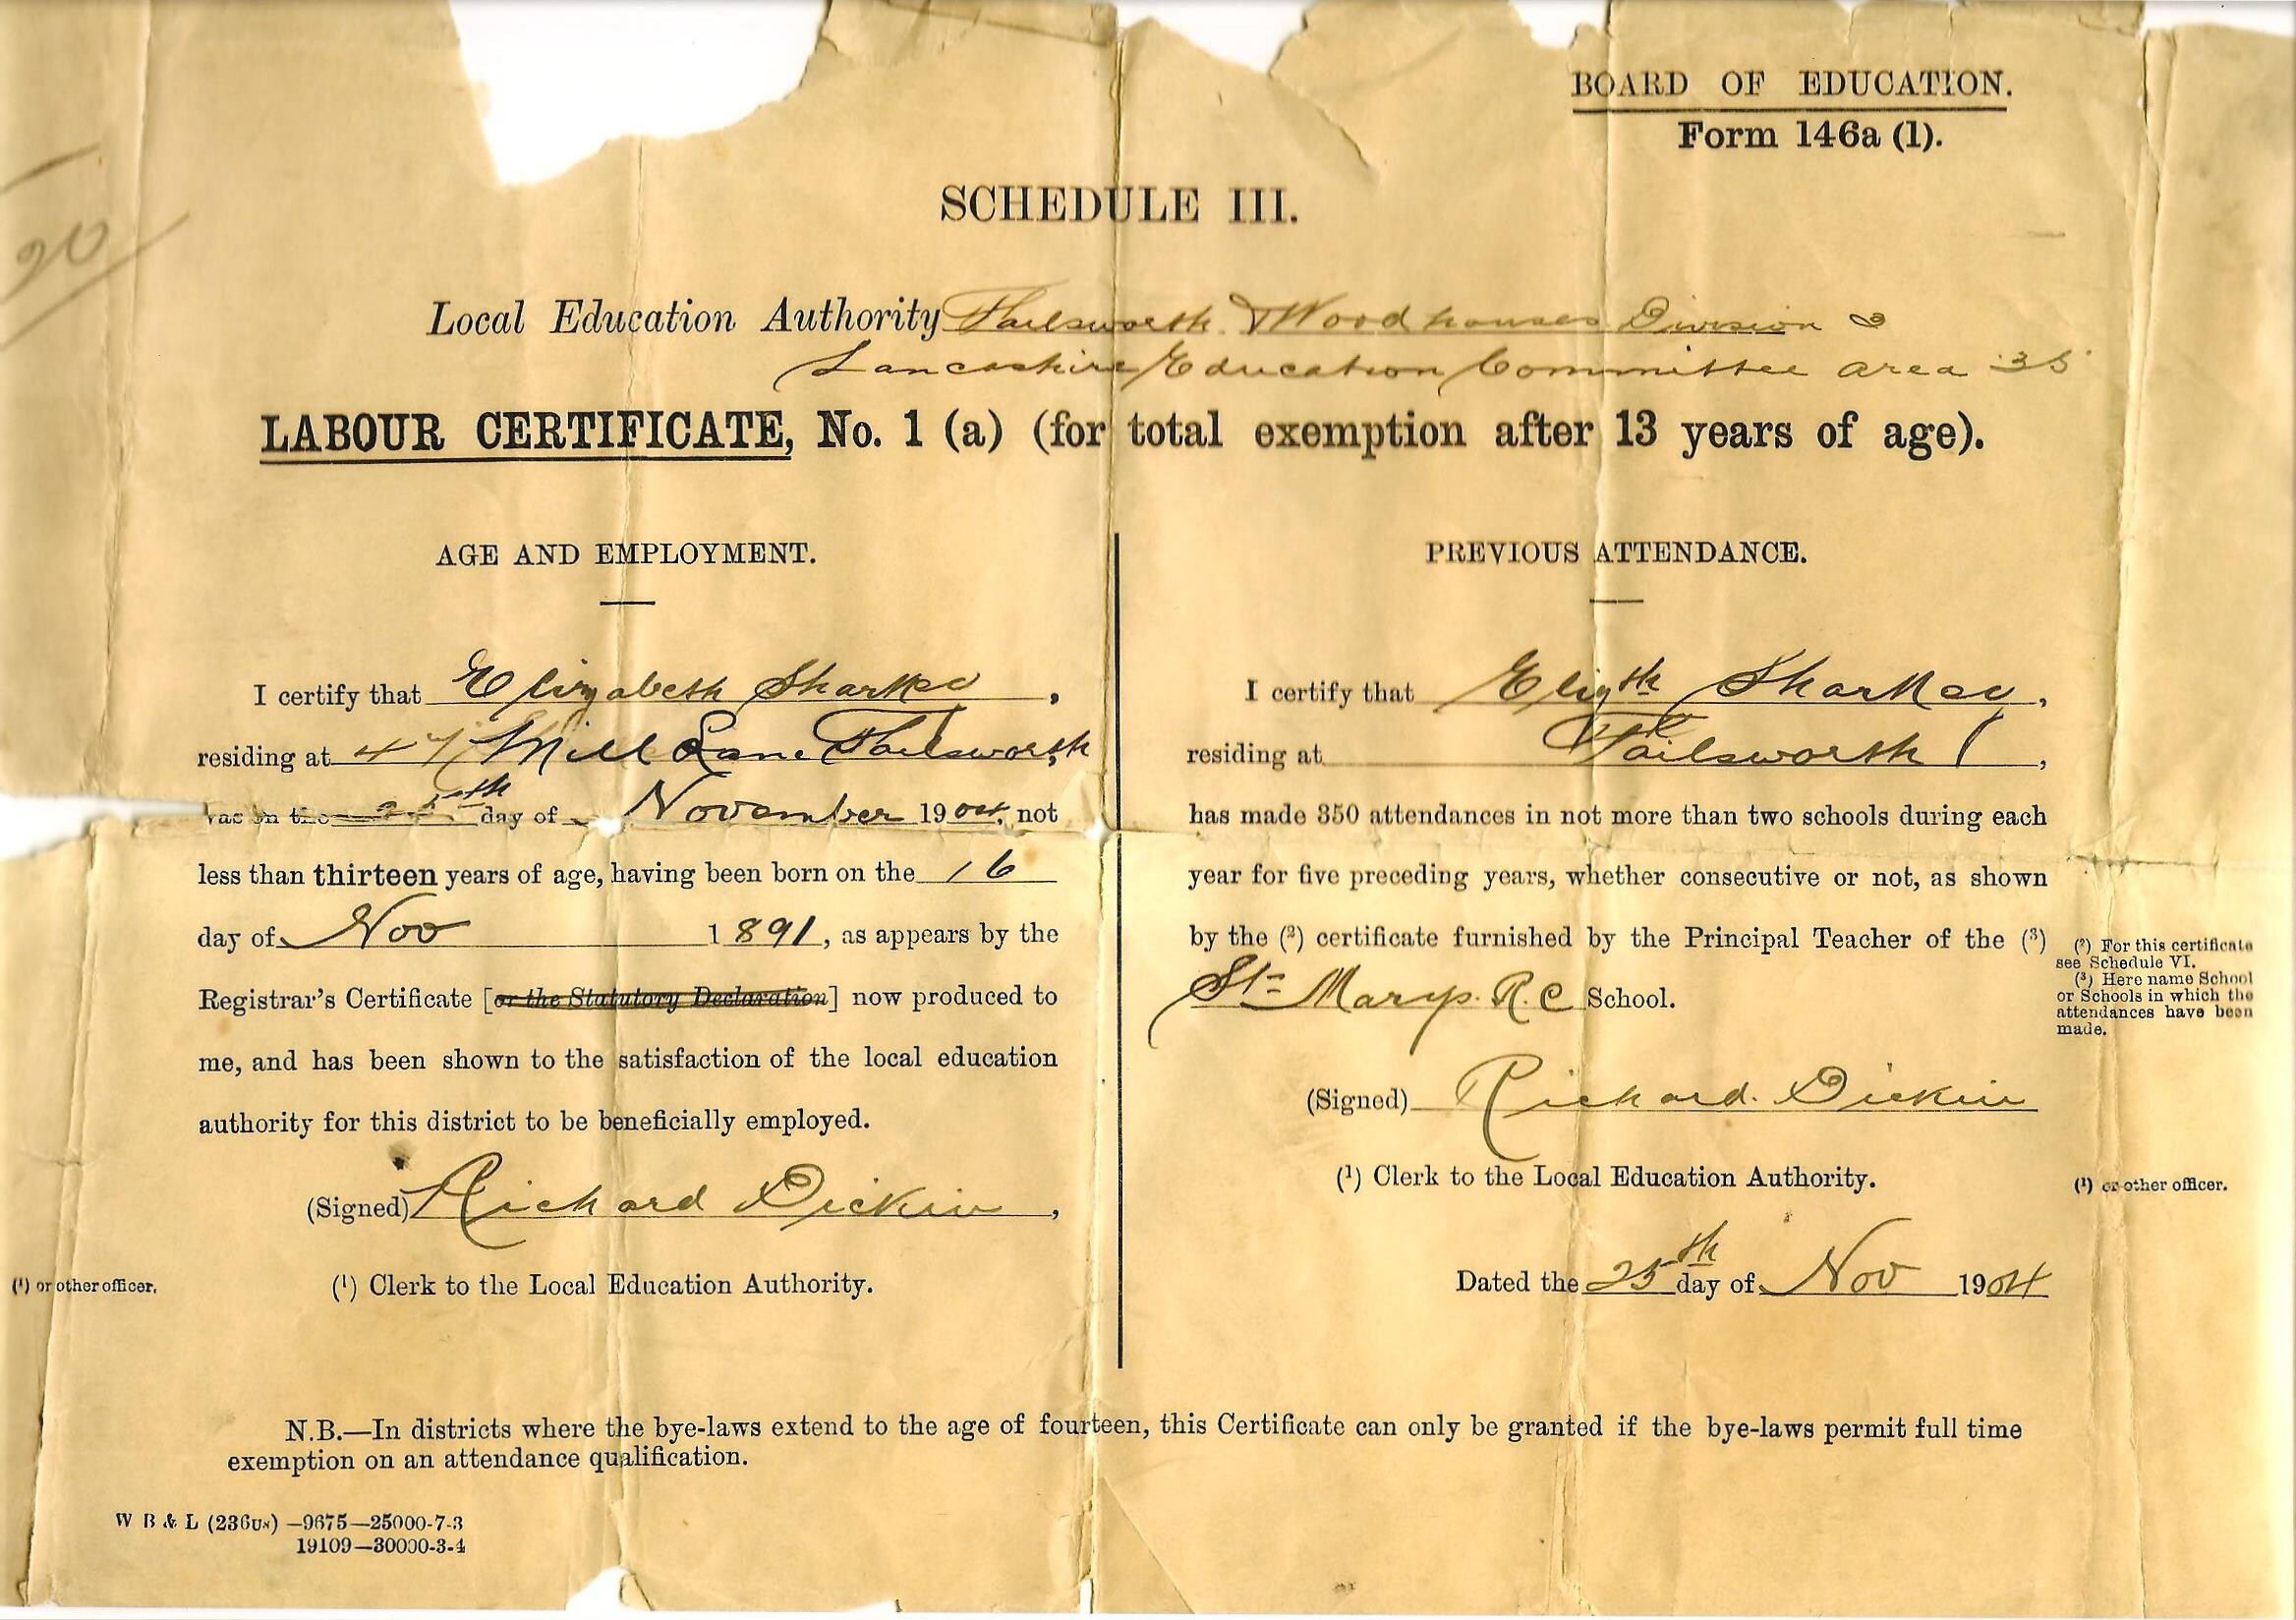 BOARD OF EDUCATION.
Form 146a (1).
20
SCHEDULE III.
Local Education Authority Failsworth & Woodhouses Division
Lancashire Education Committee area 35
LABOUR CERTIFICATE, No. 1 (a) (for total exemption after 13 years of age).
AGE AND EMPLOYMENT.
I certify that Elizabeth Sharkey,
residing at 47 Mill Lane Failsworth
was on the 25th day of November 1904, not
less than thirteen years of age, having been born on the 16
day of Nov 1891, as appears by the
Registrar's Certificate [or the Statutory Declaration] now produced to
me, and has been shown to the satisfaction of the local education
authority for this district to be beneficially employed.
(Signed) Richard Dickin,
(1) or other officer.
(1) Clerk to the Local Education Authority.
PREVIOUS ATTENDANCE.
I certify that Elizth Sharkey,
residing at Failsworth,
has made 350 attendances in not more than two schools during each
year for five preceding years, whether consecutive or not, as shown
by the (2) certificate furnished by the Principal Teacher of the (3)
St Marys. R.C School.
(2) For this certificate
see Schedule VI.
(3) Here name School
or Schools in which the
attendances have been
made.
(Signed) Richard. Dickin
(1) Clerk to the Local Education Authority.
(1) or other officer.
Dated the 25th day of Nov 1904
N.B.—In districts where the bye-laws extend to the age of fourteen, this Certificate can only be granted if the bye-laws permit full time
exemption on an attendance qualification.
W B & L (236Us) —9675—25000-7-3
19109—30000-3-4